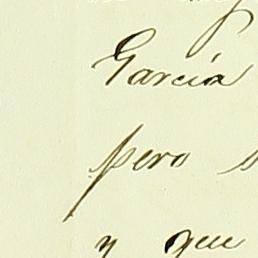 García
pero
y que